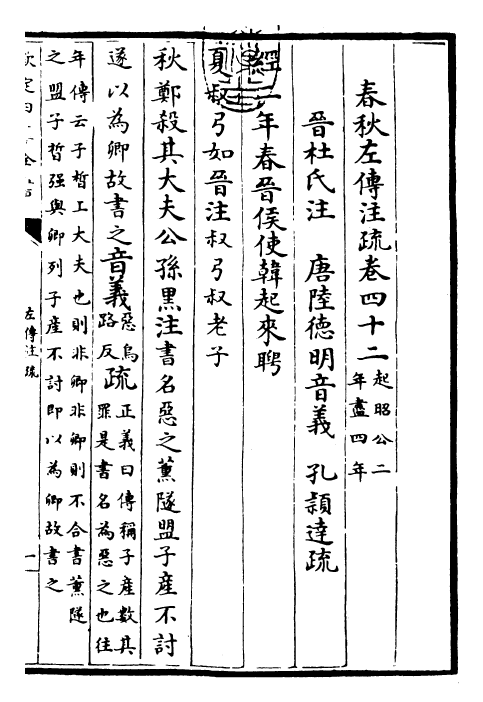 春秋左傳注疏卷四十二起昭公二年盡四年
晉杜氏注　唐陸德明音義　孔穎達疏
經二年春晉侯使韓起來聘
夏叔弓如晉注叔弓叔老子
秋鄭殺其大夫公孫黑注書名惡之薰隧盟子產不討
遂以為卿故書之音義惡烏路反疏正義曰傳稱子產數其罪是書名為惡之也往
年傳云子晳上大夫也則非卿非卿則不合書薰隧
之盟子晳强與卿列子產不討即以為卿故書之
欽定四庫全書
左傳注疏
一